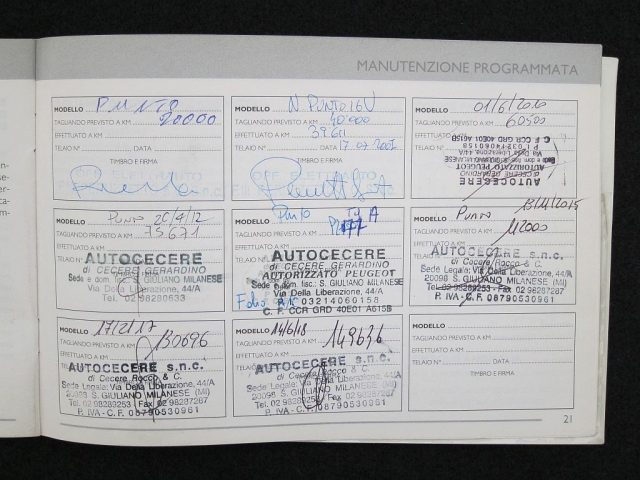 MANUTENZIONE PROGRAMMATA
MODELLO PUNTO
TAGLIANDO PREVISTO A KM 20000
EFFETTUATO A KM
TELAIO N° DATA
TIMBRO E FIRMA
MODELLO PUNTO 16V
TAGLIANDO PREVISTO A KM 40000
EFFETTUATO A KM 39611
TELAIO N° DATA 17.07.2007
TIMBRO E FIRMA
MODELLO 01/6/2010
TAGLIANDO PREVISTO A KM 60500
EFFETTUATO A KM
TELAIO N°
AUTOCECERE
di CECERE GERARDINO
AUTORIZZATO PEUGEOT
Via Della Liberazione, 44/A
P. I. 03214060158
C. F. CCR GRD 40E01 A615B
MODELLO PUNTO 20/4/12
TAGLIANDO PREVISTO A KM 75671
EFFETTUATO A KM
AUTOCECERE
di CECERE GERARDINO
Sede e dom. fisc.: S. GIULIANO MILANESE
Via Della Liberazione, 44/A
Tel. 02 98280633
MODELLO Punto
TAGLIANDO PREVISTO A KM
EFFETTUATO A KM
AUTOCECERE
di CECERE GERARDINO
AUTORIZZATO PEUGEOT
Sede e dom. fisc.: S. GIULIANO MILANESE
Via Della Liberazione, 44/A
P. I. 03214060158
C. F. CCR GRD 40E01 A615B
MODELLO PUNTO 13/11/2015
TAGLIANDO PREVISTO A KM 112000
EFFETTUATO A KM
AUTOCECERE s.n.c.
di Cecere Rocco & C.
Sede Legale: Via Della Liberazione, 44/A
20098 S. GIULIANO MILANESE (MI)
Tel. 02 98289253 - Fax 02 98287267
P. IVA - C. F. 08790530961
MODELLO 17/2/17
TAGLIANDO PREVISTO A KM 130696
EFFETTUATO A KM
AUTOCECERE s.n.c.
di Cecere Rocco & C.
Sede Legale: Via Della Liberazione, 44/A
20098 S. GIULIANO MILANESE (MI)
Tel. 02 98289253 - Fax 02 98287267
P. IVA - C. F. 08790530961
MODELLO 14/6/18
TAGLIANDO PREVISTO A KM 149636
EFFETTUATO A KM
AUTOCECERE s.n.c.
di Cecere Rocco & C.
Sede Legale: Via Della Liberazione, 44/A
20098 S. GIULIANO MILANESE (MI)
Tel. 02 98289253 - Fax 02 98287267
P. IVA - C. F. 08790530961
MODELLO
TAGLIANDO PREVISTO A KM
EFFETTUATO A KM
TELAIO N° DATA
TIMBRO E FIRMA
21